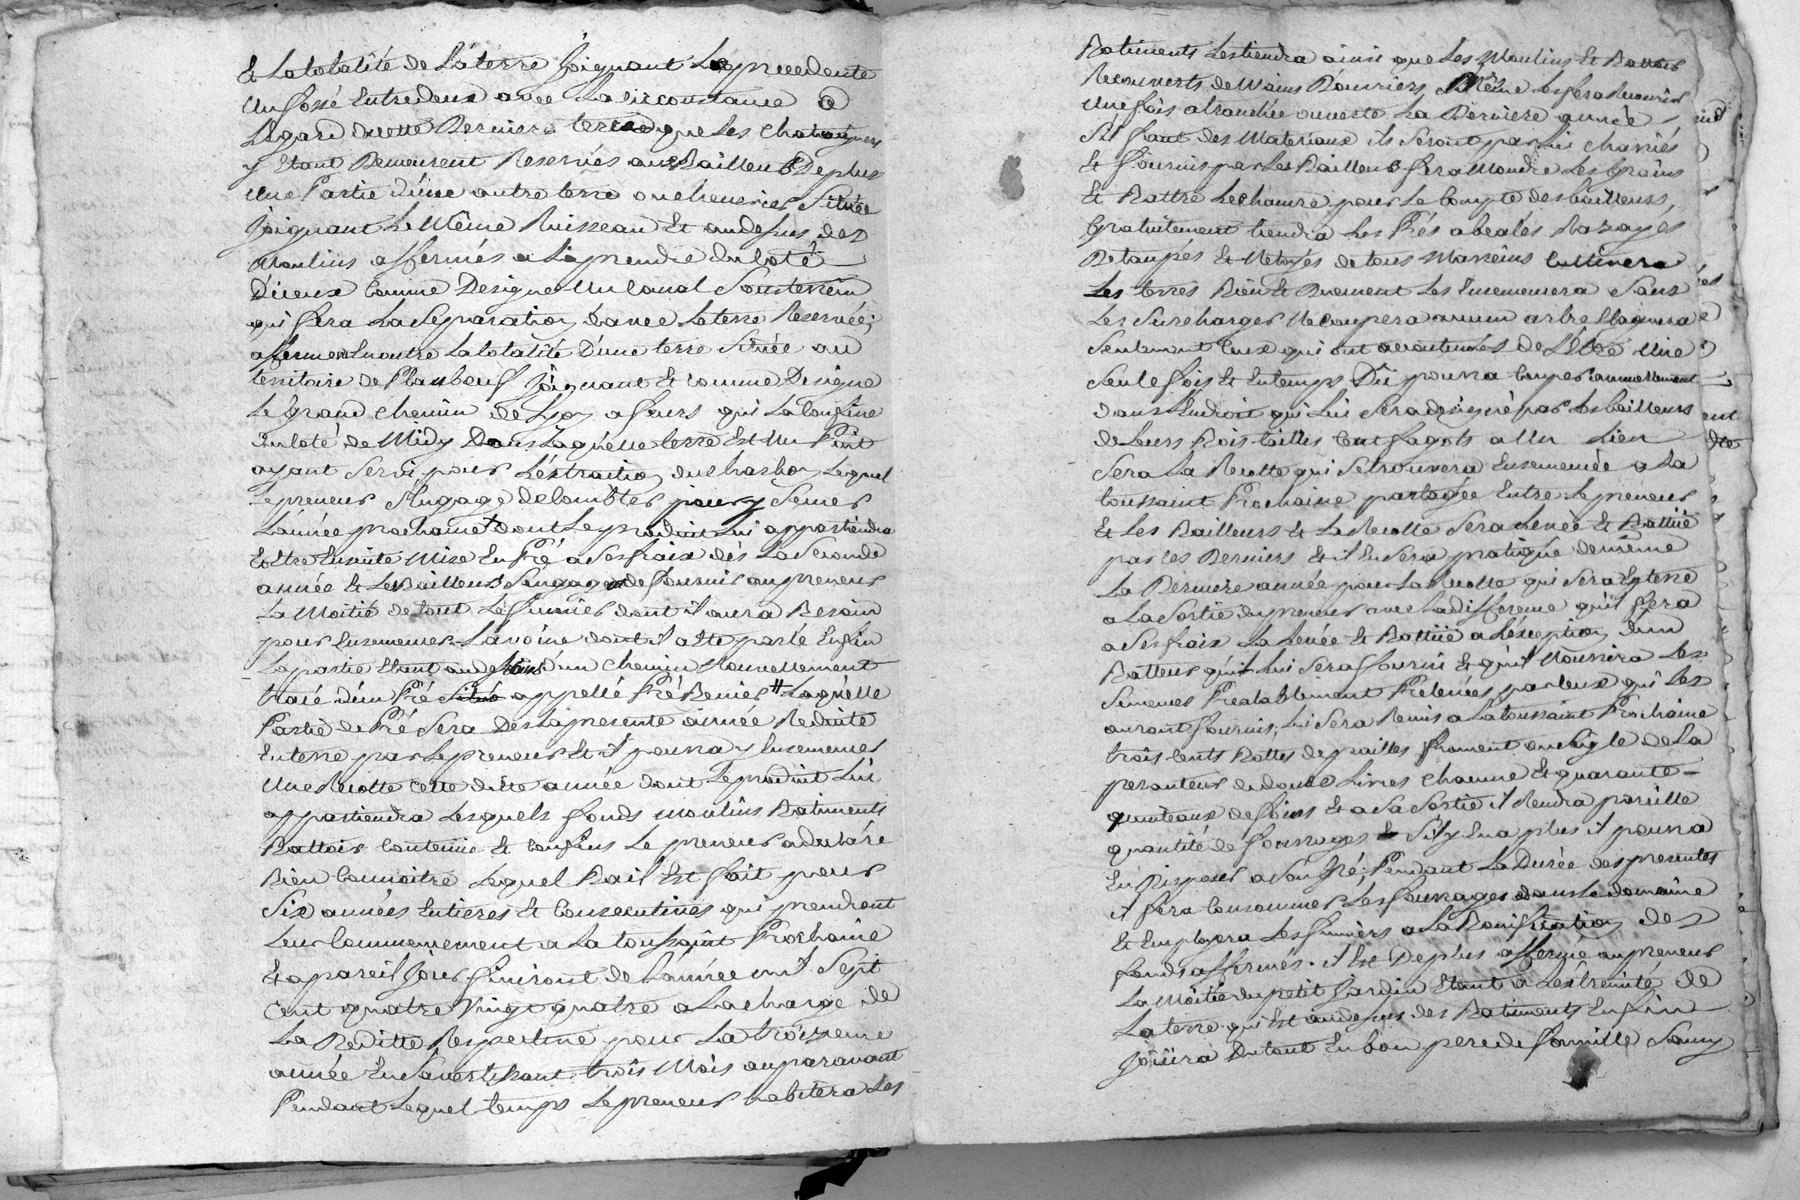 Et La totalité de La terre Joignant La precedente
Un fossé Entredeux avec La circonstance a
L'égard de cette Derniere terre que Les Chataigners
y Etant Demeurent Reservés aux Bailleurs De plus
Une Partie d'une autre terre ou chenevier Située
Joignant Le Même Ruisseau Et au dessus des
Moulins affermés a La prendre du coté
D'iceux Comme Designe Un Canal Sousterrein
qui fera La Separation d'avec La terre Reservée;
afferment En outre La totalité D'une terre Située au
territoire de Planbeuf Joignant Et comme Designe
Le grand chemin de Lyon a feurs qui La Confine
Du coté de Midy Dans Laquelle terre Est Un Puit
ayant Servi pour L'extraction du charbon Lequel
Le preneur S'Engage de Combler pour y Semer
L'année prochaine dont Le produit Lui appartiendra
Et Etre Ensuite Mise En Pré a Ses fraix dès La Seconde
année Et Les Bailleurs S'engagent de fournir au preneur
La Moitié de tout Le fumier dont il aura Besoin
pour Ensemencer L'avoine dont il a Eté parlé Enfin
La partie Etant au dessous d'un chemin Nouvellement
tracé d'un Pré Situé appellé Pré Benier # Laquelle
Partie de Pré Sera Dès La presente année Reduite
En terre par Le preneur Et il pourra y Ensemencer
Une Recolte cette ditte année dont Le produit Lui
appartiendra Lesquels fonds Moulins Batiments
Battoir Contenue Et Confins Le preneur a declaré
Bien Connoitre Lequel Bail Est fait pour
Six années Entieres Et Consecutives qui prendront
Leur Commencement a La toussaint Prochaine
Et a pareil Jour finiront de L'année mil Sept
Cent quatre Vingt quatre a La charge de
La Reditte Respective pour La troizieme
année En S'avertissant trois Mois auparavant
Pendant Lequel temps Le preneur habitera Les
Batiments Les tiendra ainsi que Les Moulins Et Battoir
Recouverts de Mains D'ouvriers Même Les fera Recouvrir
Une fois a tranchée ouverte La Derniere année
S'il faut des Materiaux ils Seront par Lui chariés
Et fournis par Les Bailleurs fera Moudre Les Grains
Et Battre Le chanvre pour Le Compte des bailleurs
Gratuitement tiendra Les Prés a béalés Razoyés
Détaupés Et Netoyés de tous Mareins Cultivera
Les terres Bien Et Duement Les Ensemencera Sans
Les Surcharger Ne Coupera aucun arbre Elaguera
Seulement Ceux qui ont accoutumés de L'être Une
Seule fois Et En temps Dû pourra Couper annuellement
dans L'endroit qui Lui Sera designé par Les bailleurs
de Leurs Bois taillis Cent fagots a Un Lien
Sera La Recolte qui Se trouvera Ensemencée a La
toussaint Prochaine partagée Entre Le preneur
Et Les Bailleurs Et La Recolte Sera Levée Et Battüe
par ces Derniers Et il En Sera pratiqué de même
La Derniere année pour La Recolte qui Sera En terre
a La Sortie du preneur avec La difference qu'il fera
a Ses fraix La Levée Et Battüe a L'exception d'un
Batteur qui Lui Sera fourni Et qu'il Nourrira Les
Semences Prealablement Prelevées par Ceux qui Les
auront fournis, Lui Sera Remis a La toussaint Prochaine
trois Cents Bottes de pailles froment ou Seigle de La
pesanteur de douze Livres Chacune Et quarante
quintaux de foins Et a Sa Sortie il Rendra pareille
quantité de fourrages Et S'il y En a plus il pourra
En Disposer a Son Gré, Pendant La Durée des presentes
il fera Consommer Les fourrages dans Le domaine
Et Employera Les fumiers a La Bonification des
fonds affermés. il Est De plus affermé au preneur
La Moitié du petit Jardin Etant a L'extremité de
La terre qui Est au dessus des Batiments Enfin
Joüira Du tout En bon pere de famille Sans y